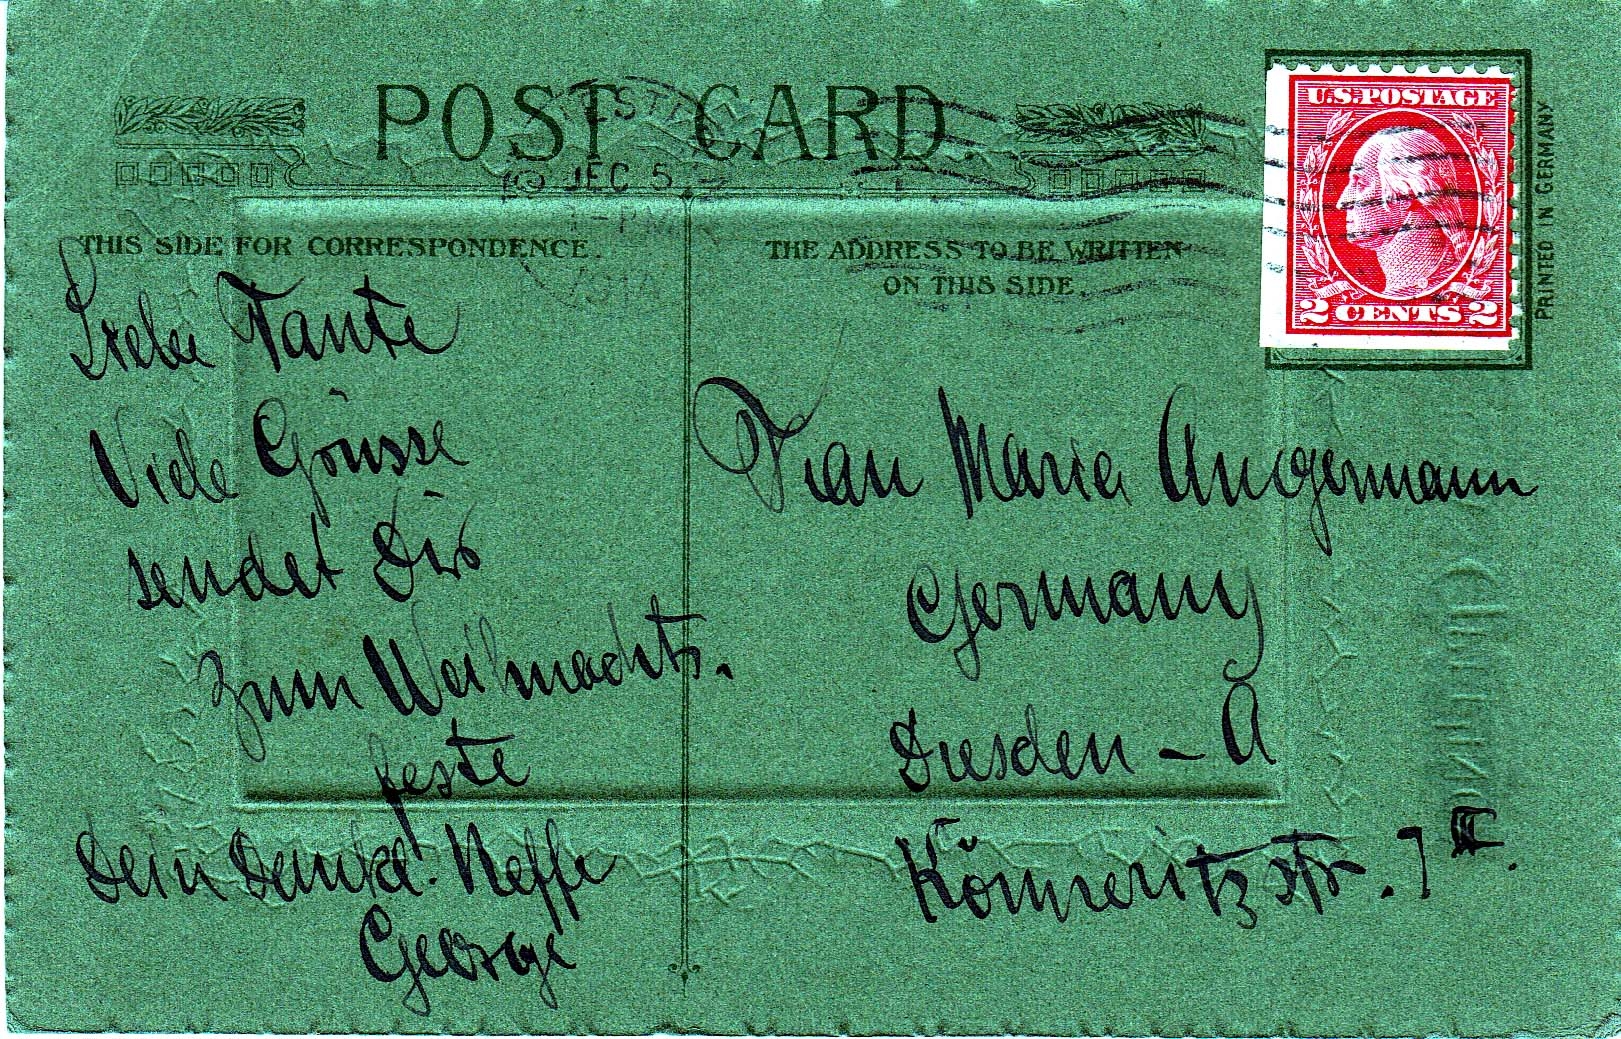 POST CARD.
DEC 5
THIS SIDE FOR CORRESPONDENCE.
Liebe Tante
Viele Grüsse
sendet Dir
zum Weihnachts-
feste
Dein Neffe
George
THE ADDRESS TO BE WRITTEN
ON THIS SIDE.
U.S. POSTAGE
2 CENTS 2
PRINTED IN GERMANY
Frau Maria Angermann
Germany
Dresden – A
Könneritzstr. 7 III.